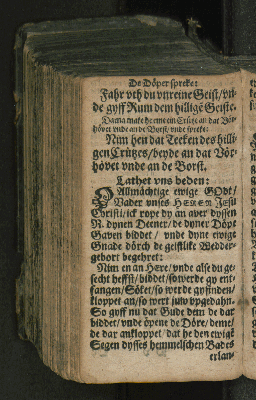 De Döper spreke:
Fahr vth du vnreine Geist/ vn-
de gyff Rum dem hillige Geiste.
Darna make he eme ein Crütze an dat Vör-
hövet vnde an de Borst, vnde spreke:
Nim hen dat Teeken des hilli-
gen Crützes/ beyde an dat Vör-
hövet vnde an de Borst.
Lathet vns beden:
O Allmächtige ewige GODt/
Vader vnses HEREN JESU
Christi/ ick rope dy an aver dyssen
N. dynen Deener/ de dyner Döpe
Gaven biddet / vnde dyne ewige
Gnade dörch de geistlike Wedder-
gebort begehret:
Nim en an Here/ vnde alse du ge-
secht heffst/ biddet/ so werde gy ent-
fangen/ Söket/ so werde gy finden/
kloppet an/ so wert juw vpgedahn.
So gyff nu dat Gude dem de dar
biddet/ vnde öpene de Döre/ deme/
de dar ankloppet/ dat he den ewige
Segen dysses hemmelschen Bades
erlan-